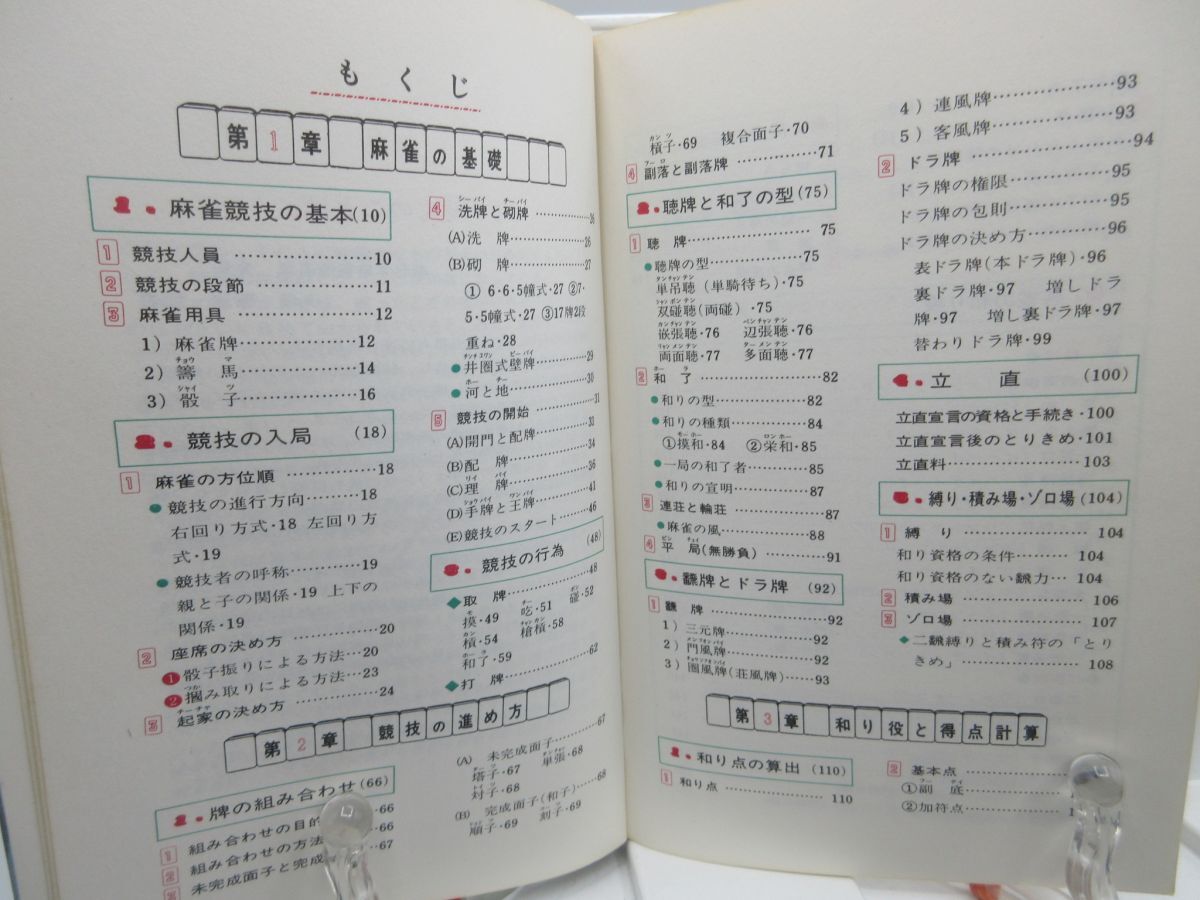 もくじ
第1章 麻雀の基礎
1. 麻雀競技の基本(10)
1 競技人員 …………… 10
2 競技の段節 …………… 11
3 麻雀用具 …………… 12
1) 麻雀牌 …………… 12
2) 籌馬 …………… 14
3) 骰子 …………… 16
2. 競技の入局 (18)
1 麻雀の方位順 …………… 18
●競技の進行方向……18
右回り方式・18 左回り方
式・19
●競技者の呼称…………19
親と子の関係・19 上下の
関係・19
2 座席の決め方 …………… 20
❶骰子振りによる方法…20
❷摑み取りによる方法…23
3 起家の決め方 …………… 24
4 洗牌と砌牌 …………… 26
(A)洗牌 …………… 26
(B)砌牌 …………… 27
① 6・6・5幢式・27 ②7・
5・5幢式・27 ③17牌2段
重ね・28
●井圏式壁牌 …………… 29
●河と地 …………… 30
5 競技の開始 …………… 31
(A)開門と配牌 …………… 33
(B)配牌 …………… 34
(C)理牌 …………… 36
(D)手牌と王牌 …………… 41
(E)競技のスタート……46
3. 競技の行為 (48)
◆取牌 …………… 48
摸・49 吃・51 碰・52
槓・54 槍槓・58
和了・59
◆打牌 …………… 62
第2章 競技の進め方
1. 牌の組み合わせ(66)
1 組み合わせの目的 66
2 組み合わせの方法 66
3 未完成面子と完成 67
(A) 未完成面子 …………… 67
塔子・67 単張・68
対子・68
(B) 完成面子(和子)……68
順子・69 刻子・69
槓子・69 複合面子・70
4 副落と副落牌 …………… 71
2. 聴牌と和了の型(75)
1 聴牌 …………… 75
●聴牌の型 …………… 75
単吊聴(単騎待ち)・75
双碰聴(両碰)・75
嵌張聴・76 辺張聴・76
両面聴・77 多面聴・77
2 和了 …………… 82
●和りの型 …………… 82
●和りの種類 …………… 84
①摸和・84 ②栄和・85
●一局の和了者 …………… 85
●和りの宣明 …………… 87
3 連荘と輪荘 …………… 87
●麻雀の風 …………… 88
4 平局(無勝負) …………… 91
3. 飜牌とドラ牌 (92)
1 飜牌 …………… 92
1) 三元牌 …………… 92
2) 門風牌 …………… 92
3) 圏風牌(荘風牌)……93
4) 連風牌 …………… 93
5) 客風牌 …………… 93
2 ドラ牌 …………… 94
ドラ牌の権限 …………… 95
ドラ牌の包則 …………… 95
ドラ牌の決め方 …………… 96
表ドラ牌(本ドラ牌)・96
裏ドラ牌・97 増しドラ
牌・97 増し裏ドラ牌・97
替わりドラ牌・99
4. 立直 (100)
立直宣言の資格と手続き・100
立直宣言後のとりきめ・101
立直料 …………… 103
5. 縛り・積み場・ゾロ場(104)
1 縛り …………… 104
和り資格の条件 …………… 104
和り資格のない飜力… 104
2 積み場 …………… 106
3 ゾロ場 …………… 107
◆二飜縛りと積み符の「とり
きめ」…………… 108
第3章 和り役と得点計算
1. 和り点の算出 (110)
1 和り点 …………… 110
2 基本点 ……………
①副底 ……………
②加符点 ……………